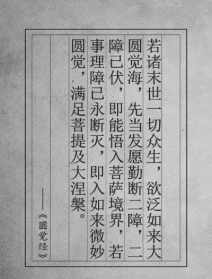 若诸末世一切众生，欲泛如来大
圆觉海，先当发愿勤断二障，二
障已伏，即能悟入菩萨境界，若
事理障已永断灭，即入如来微妙
圆觉，满足菩提及大涅槃。
——《圆觉经》